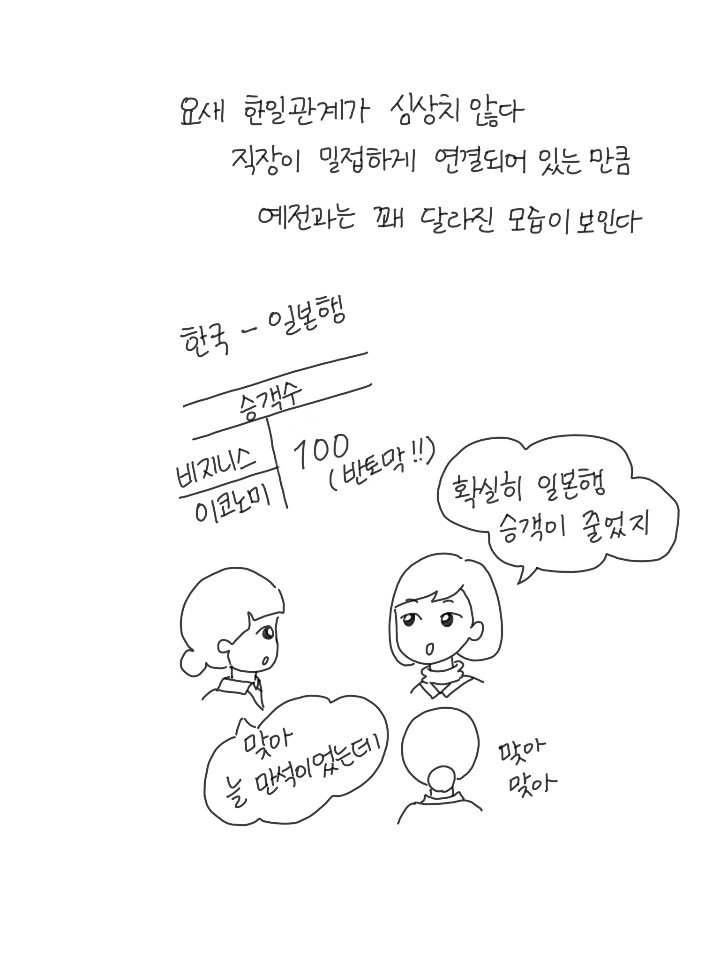 요새 한일관계가 심상치 않다
직장이 밀접하게 연결되어 있는 만큼
예전과는 꽤 달라진 모습이 보인다
한국 - 일본행
승객수
비지니스
이코노미
100
(반토막!!)
확실히 일본행
승객이 줄었지
맞아
늘 만석이었는데
맞아
맞아